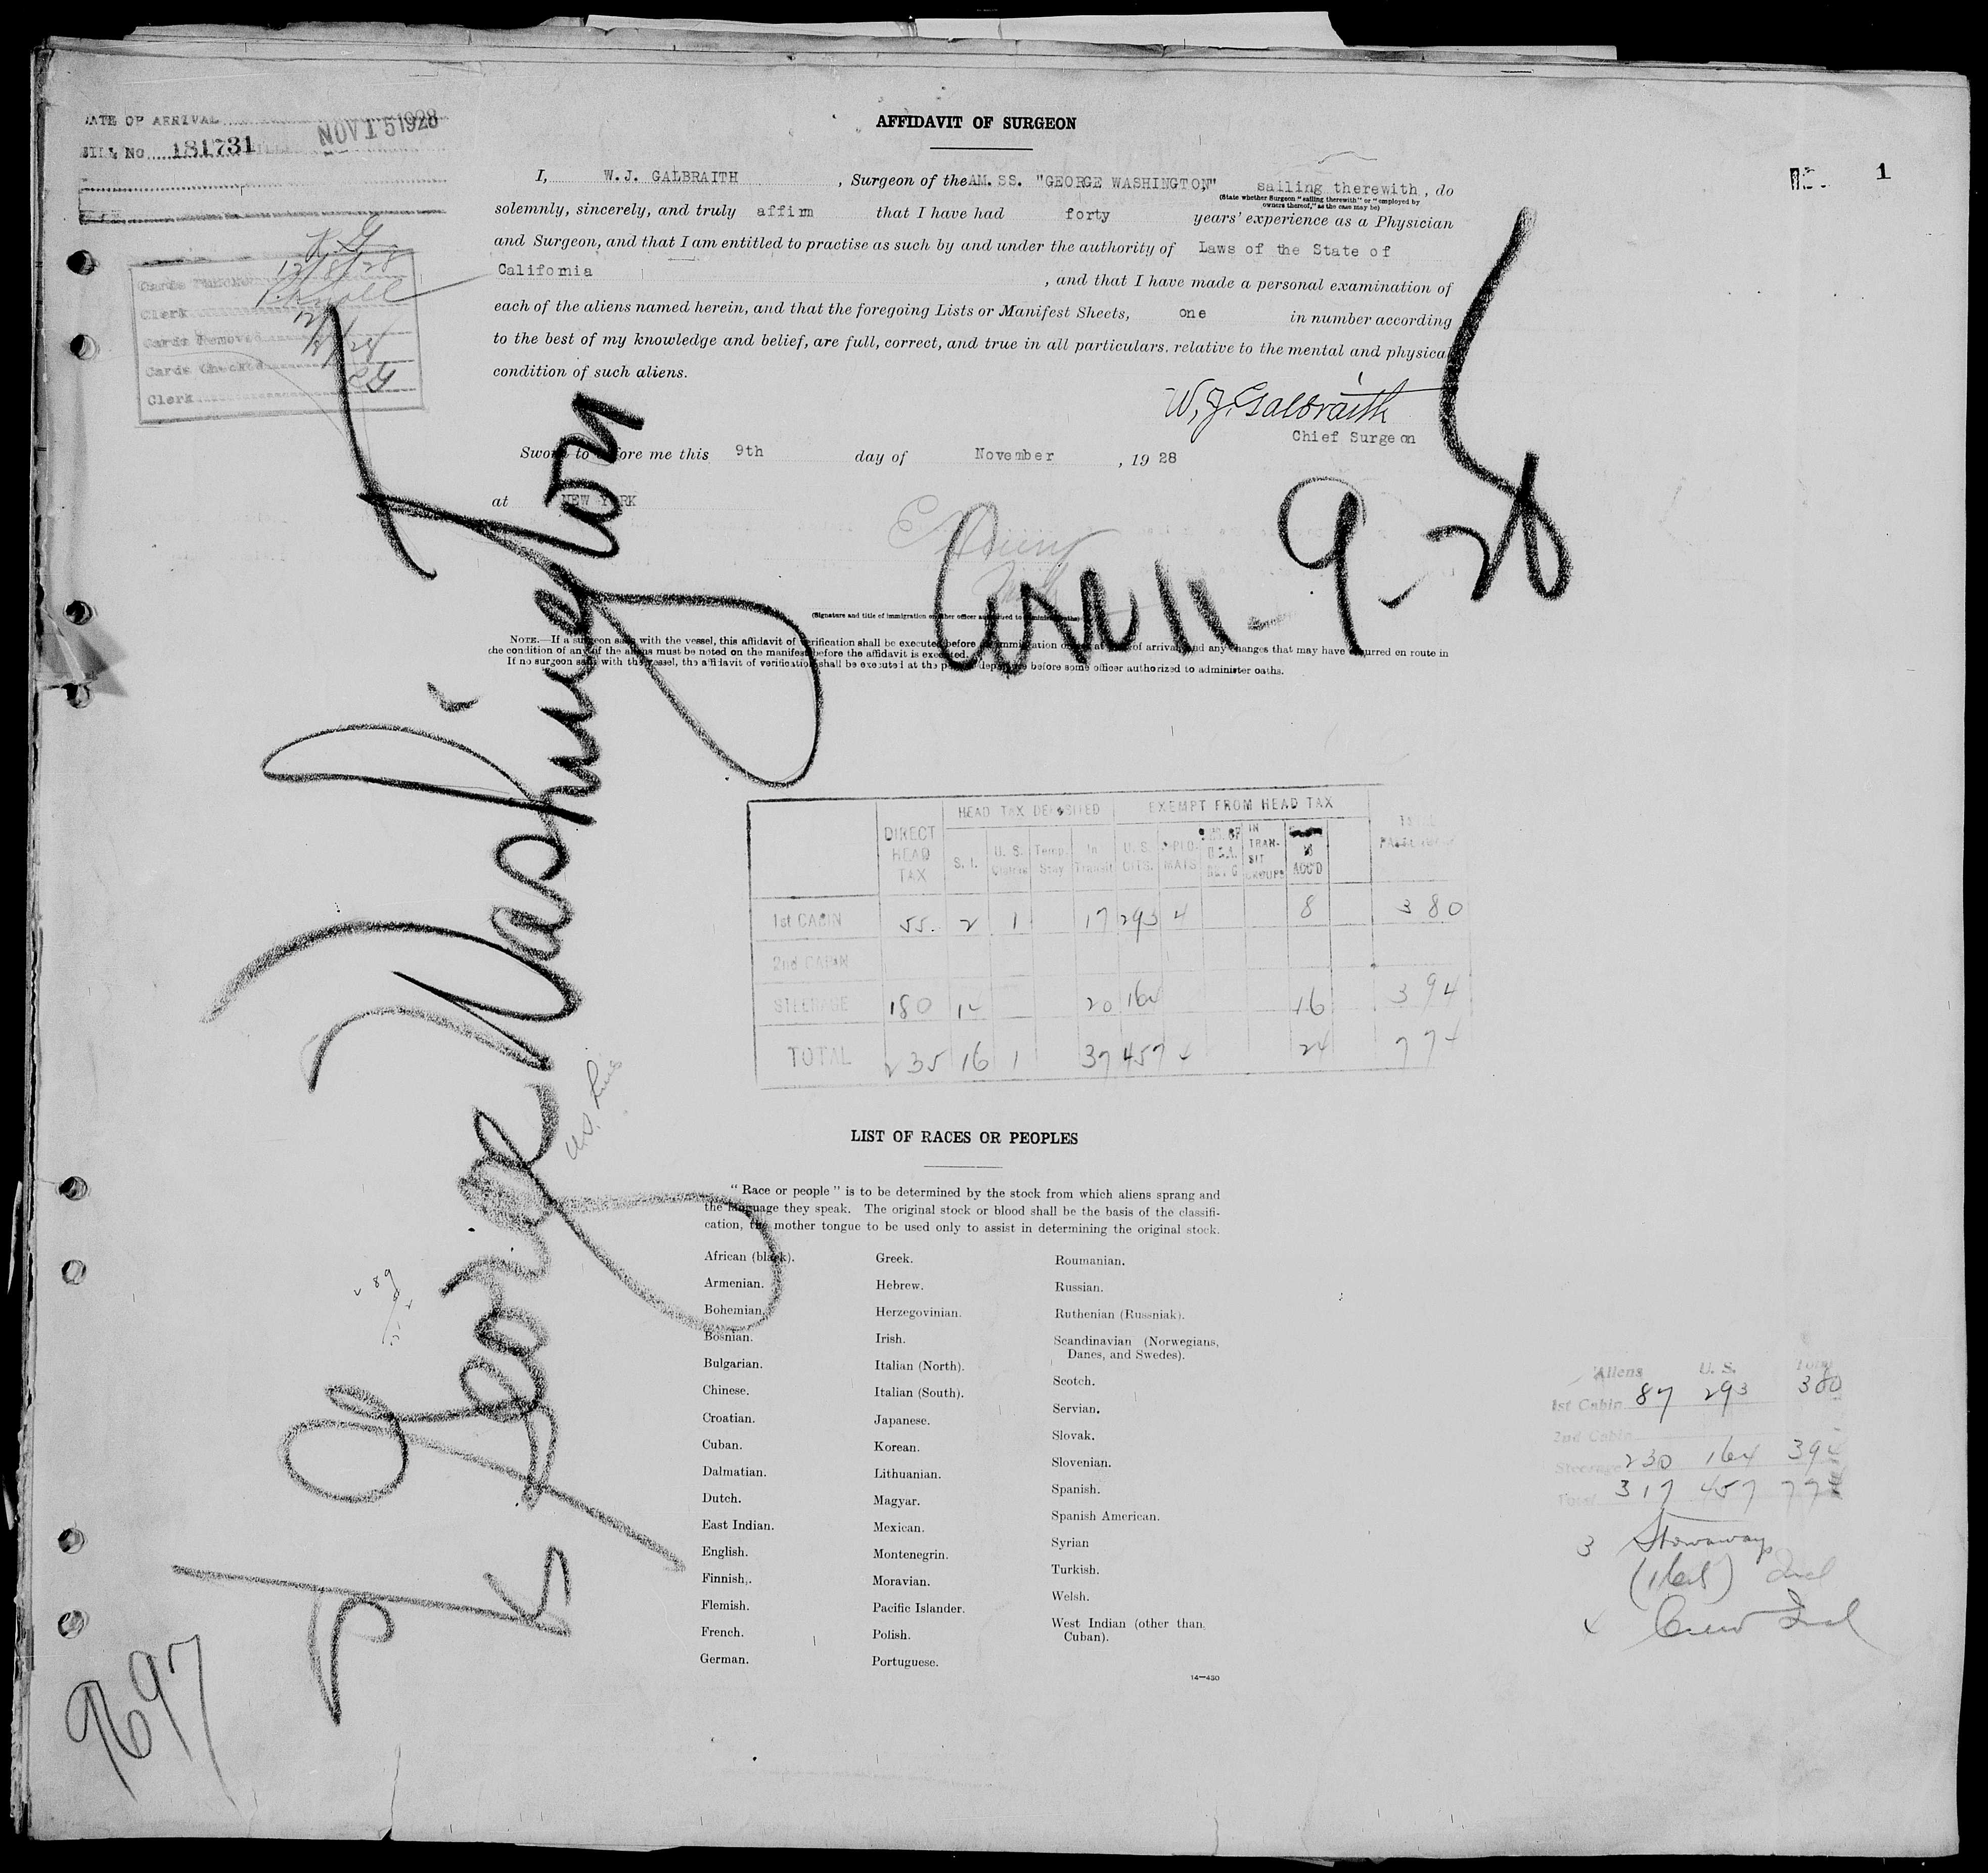 DATE OF ARRIVAL
NOV 15 1928
BILL No 181731
AFFIDAVIT OF SURGEON
1
I, W.J. GALBRAITH, Surgeon of the AM. SS. "GEORGE WASHINGTON" sailing therewith, do
(State whether Surgeon "sailing therewith" or "employed by
owners thereof," as the case may be)
solemnly, sincerely, and truly affirm that I have had forty years' experience as a Physician
and Surgeon, and that I am entitled to practise as such by and under the authority of Laws of the State of
California, and that I have made a personal examination of
each of the aliens named herein, and that the foregoing Lists or Manifest Sheets, one in number according
to the best of my knowledge and belief, are full, correct, and true in all particulars, relative to the mental and physical
condition of such aliens.
W. J. Galbraith
Chief Surgeon
Sworn to before me this 9th day of November, 1928
at NEW YORK
12/8/28
Clerk
Cards Removed
Cards Checked
Clerk
11-9-28
(Signature and title of immigration or other officer authorized to administer oaths)
NOTE.—If a surgeon sails with the vessel, this affidavit of verification shall be executed before an immigration officer at port of arrival and any changes that may have occurred en route in
the condition of any of the aliens must be noted on the manifest before the affidavit is executed.
If no surgeon sails with the vessel, the affidavit of verification shall be executed at the port of departure before some officer authorized to administer oaths.
George Washington
HEAD TAX DEPOSITED EXEMPT FROM HEAD TAX
DIRECT HEAD TAX S. I. U. S. Temp. Stay In Transit U. S. CITS. DIPLOMATS U.S.A. IN TRANSIT GROUPS ACC'D TOTAL PASSENGERS
1st CABIN 55 2 1 17 293 4 8 380
2nd CABIN
STEERAGE 180 14 20 164 16 394
TOTAL 235 16 1 37 457 4 24 774
U.S. Lines
LIST OF RACES OR PEOPLES
"Race or people" is to be determined by the stock from which aliens sprang and
the language they speak. The original stock or blood shall be the basis of the classifi-
cation, the mother tongue to be used only to assist in determining the original stock.
African (black).
Armenian.
Bohemian.
Bosnian.
Bulgarian.
Chinese.
Croatian.
Cuban.
Dalmatian.
Dutch.
East Indian.
English.
Finnish.
Flemish.
French.
German.
Greek.
Hebrew.
Herzegovinian.
Irish.
Italian (North).
Italian (South).
Japanese.
Korean.
Lithuanian.
Magyar.
Mexican.
Montenegrin.
Moravian.
Pacific Islander.
Polish.
Portuguese.
Roumanian.
Russian.
Ruthenian (Russniak).
Scandinavian (Norwegians,
Danes, and Swedes).
Scotch.
Servian.
Slovak.
Slovenian.
Spanish.
Spanish American.
Syrian
Turkish.
Welsh.
West Indian (other than
Cuban).
14—430
Aliens U. S. Total
1st Cabin 87 293 380
2nd Cabin
Steerage 230 164 394
Total 317 457 774
3 Stowaways
Crew Incl
9697